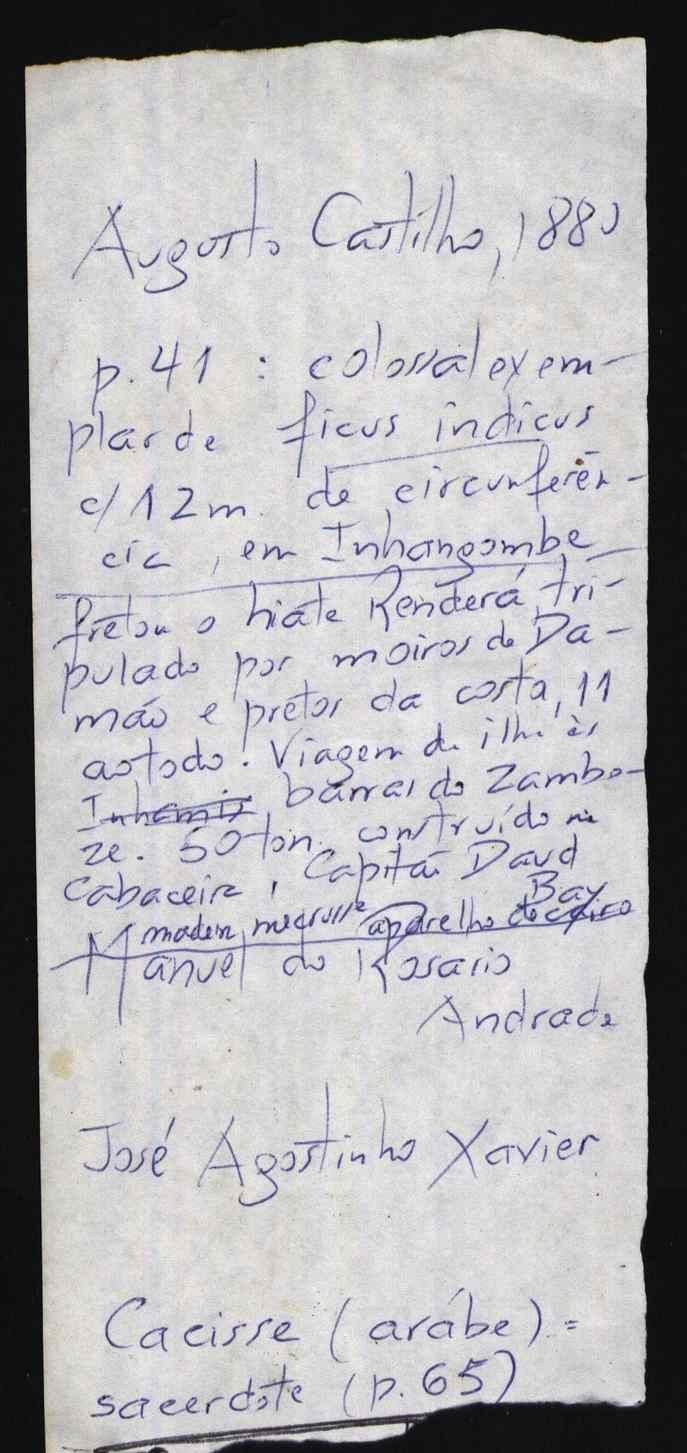 Augusto Castilho, 1880
p. 41 : colossal exem-
plar de ficus indicus
c/ 12 m. de circunferên-
cia, em Inhangombe
fretou o hiate Kenderá, tri-
pulado por moiros de Da-
mão e pretos da costa, 11
ao todo. Viagem da ilha às
barras do Zambe-
ze. 50 ton. construído na
Cabaceira, Capitão Daud
Bay
aparelho de cairo
Manuel do Rosario
Andrade
José Agostinho Xavier
Cacisse (arábe) =
sacerdote (p. 65)